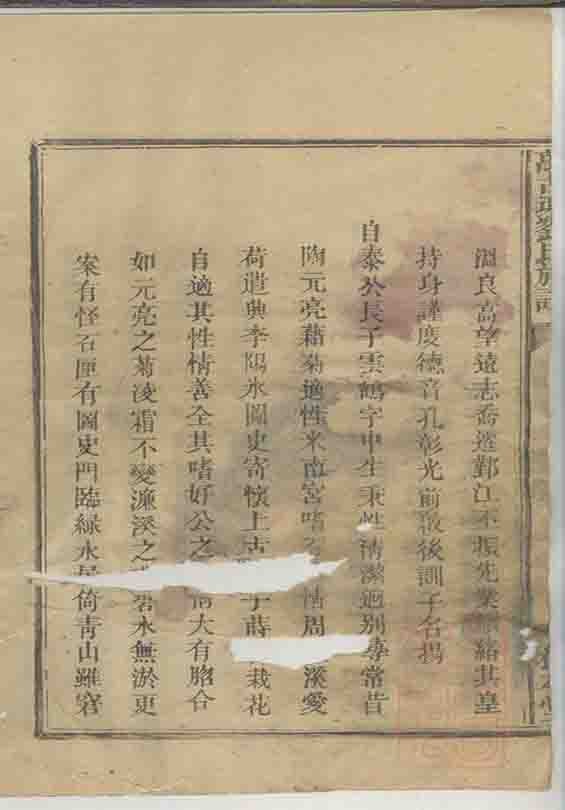 淵良高望遠志喬遷鄞江不振先業絡其皇
持身謹度德音孔彰光前後訓子名揚
自泰公長子雲鶴字中生秉性清潔迥別尋常昔
陶元亮藉菊適性米南宮嗜情周溪愛
荷遣興李陽氷圖史寄懷上古子蒔栽花
自適其性情善全其嗜好公之情大有脗合
如元亮之菊凌霜不變濂溪之碧水無淤更
案有怪石匣有圖史門臨緑水倚青山雖窘